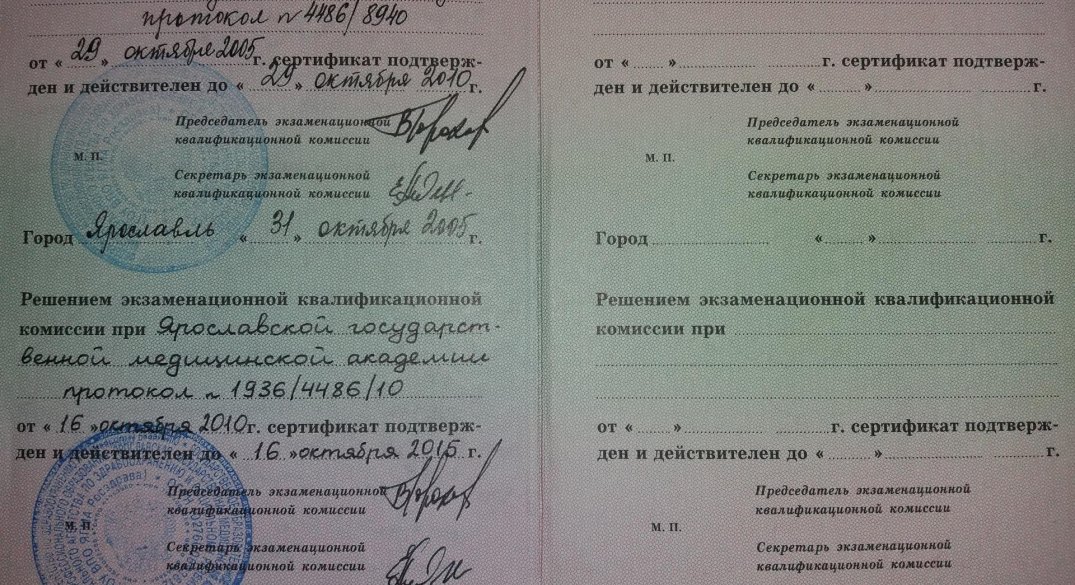 протокол № 4486/8940
от « 29 » октября 2005 г. сертификат подтверж-
ден и действителен до « 29 » октября 2010 г.
Председатель экзаменационной
квалификационной комиссии
М. П.
Секретарь экзаменационной
квалификационной комиссии
Город Ярославль « 31 » октября 2005 г.
Решением экзаменационной квалификационной
комиссии при Ярославской государст-
венной медицинской академии
протокол № 1936/4486/10
от « 16 » октября 2010 г. сертификат подтверж-
ден и действителен до « 16 » октября 2015 г.
Председатель экзаменационной
квалификационной комиссии
М. П.
Секретарь экзаменационной
квалификационной комиссии
от « » г. сертификат подтверж-
ден и действителен до « » г.
Председатель экзаменационной
квалификационной комиссии
М. П.
Секретарь экзаменационной
квалификационной комиссии
Город « » г.
Решением экзаменационной квалификационной
комиссии при
от « » г. сертификат подтверж-
ден и действителен до « » г.
Председатель экзаменационной
квалификационной комиссии
М. П.
Секретарь экзаменационной
квалификационной комиссии